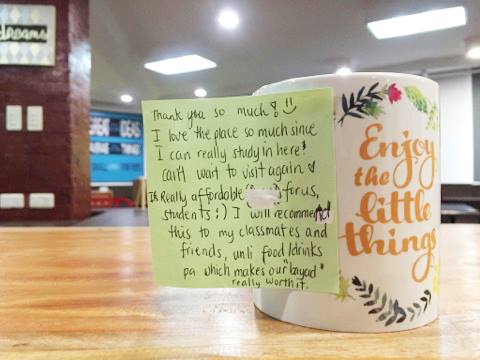 dreams
Thank you so much! :)
I love the place so much since
I can really study in here!
can't wait to visit again
It Really affordable for us,
students :) I will recommend
this to my classmates and
friends, unli food/drinks
pa which makes our "bayad"
really worth it.
Enjoy
the
little
things